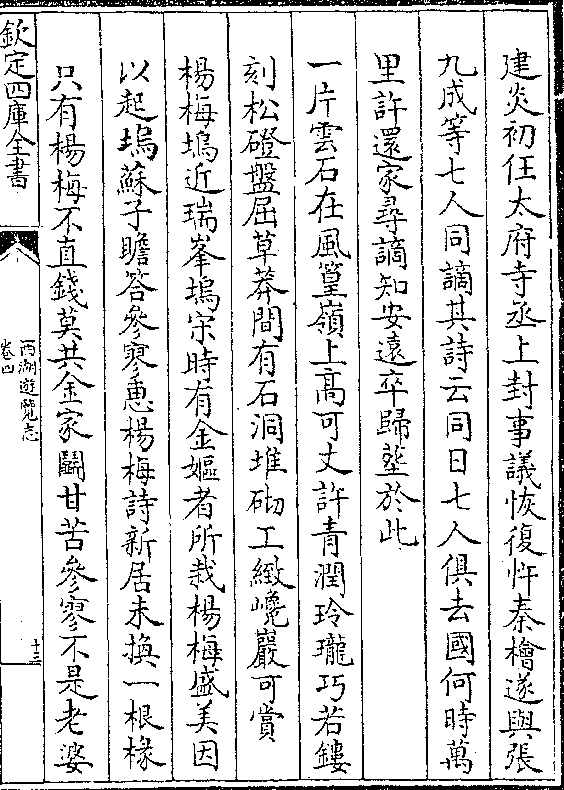 建炎初任太府寺丞上封事議恢復忤秦檜遂與張
九成等七人同謫其詩云同日七人俱去國何時萬
里許還家尋謫知安遠卒歸塟於此
一片雲石在風篁嶺上高可丈許青潤玲瓏巧若鏤
刻松磴盤屈草莽間有石洞堆砌工緻巉巖可賞
楊梅塢近瑞峯塢宋時有金嫗者所栽楊梅盛美因
以起塢蘇子瞻答參寥惠楊梅詩新居未換一根椽
只有楊梅不直錢莫共金家鬭甘苦參寥不是老婆
欽定四庫全書
西湖遊覽志
卷四
十三